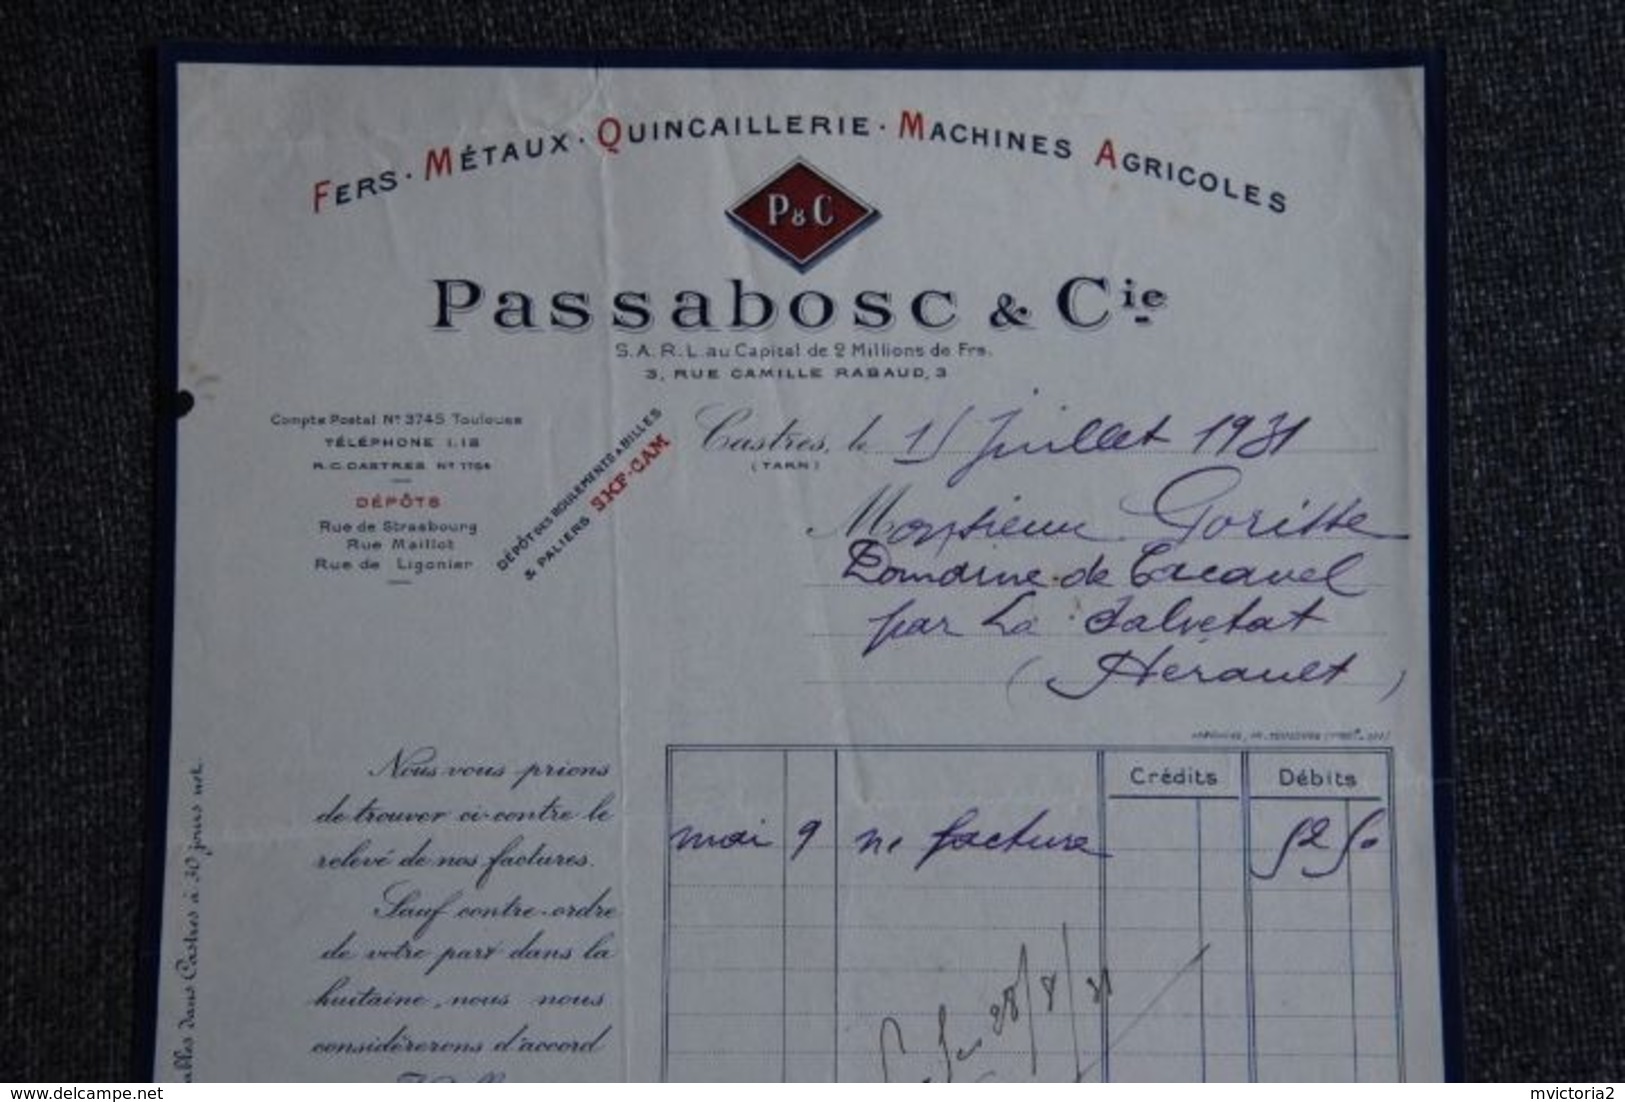 FERS · MÉTAUX · QUINCAILLERIE · MACHINES AGRICOLES
P & C
Passabosc & Cie
S.A.R.L. au Capital de 2 Millions de Frs.
3, RUE CAMILLE RABAUD, 3
Compte Postal N° 3745 Toulouse
TÉLÉPHONE 1.18
R.C. CASTRES N° 1164
DÉPÔTS
Rue de Strasbourg
Rue Maillot
Rue de Ligonier
DÉPÔT DES ROULEMENTS A BILLES
& PALIERS SKF-CAM
Castres, le 15 Juillet 1931
(TARN)
Monsieur Goritte
Domaine de Cacavel
par La Salvetat
(Hérault)
Crédits
Débits
mai 9 n/ facture 52 50
Nous vous prions
de trouver ci-contre le
relevé de nos factures.
Sauf contre-ordre
de votre part dans la
huitaine, nous nous
considérerons d'accord
ables dans Castres à 30 jours net.
28/8/31
delcampe.net
mvictoria2